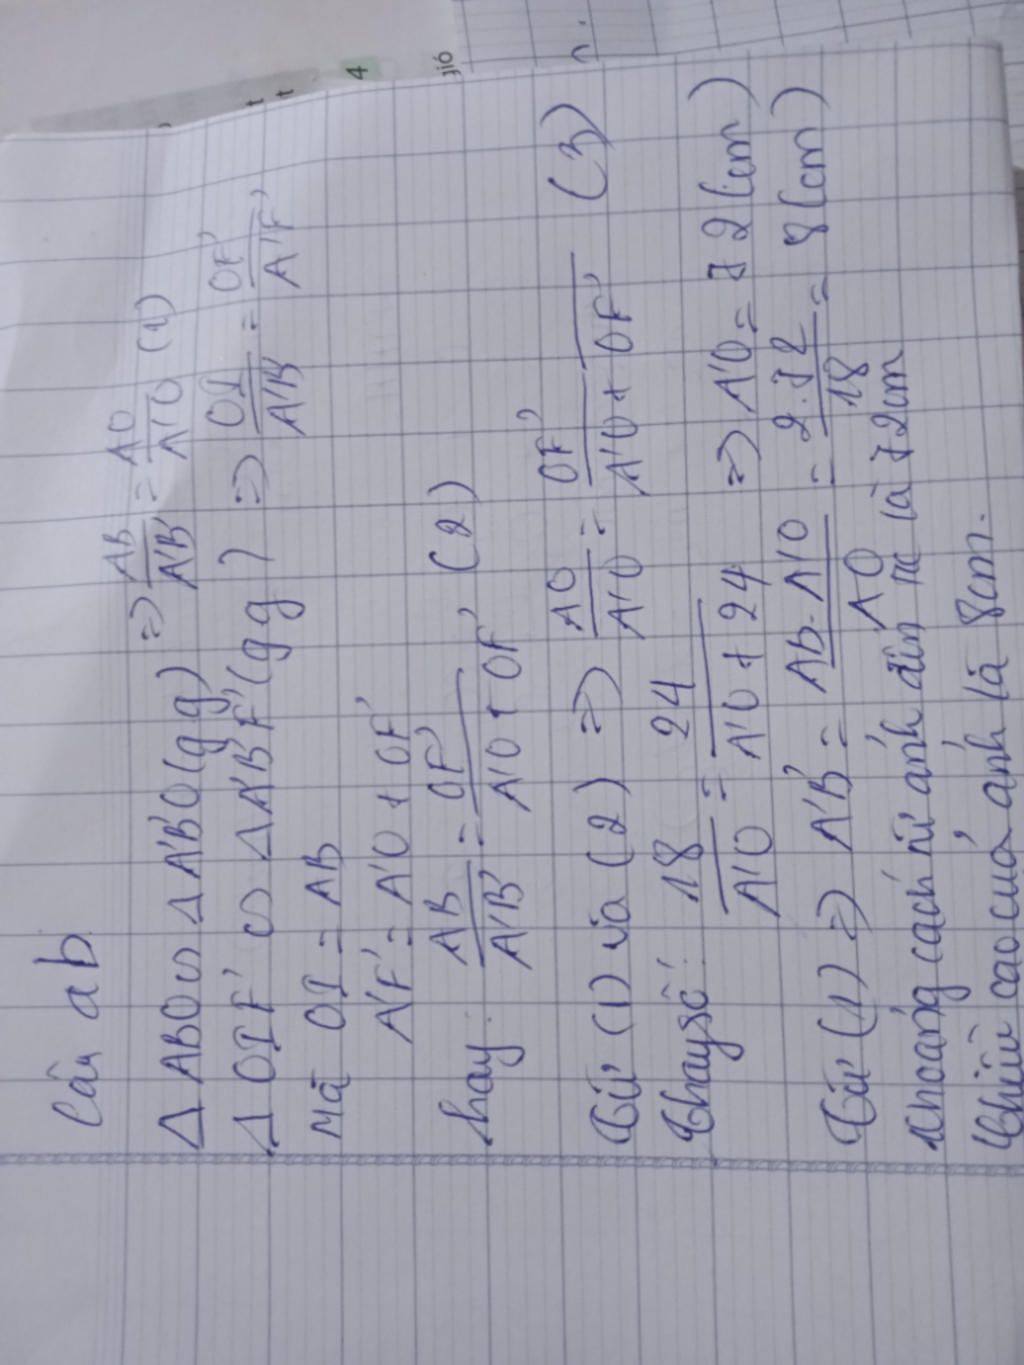 Câu a b
Δ ABO ∽ Δ A'B'O (g g) => AB/A'B' = AO/A'O (1)
Δ OIF' ∽ Δ A'B'F' (g g) => OI/A'B' = OF'/A'F'
Mà OI = AB
A'F' = A'O + OF'
hay: AB/A'B' = OF'/A'O + OF' (2)
Từ (1) và (2) => AO/A'O = OF'/A'O + OF' (3)
Thay số: 18/A'O = 24/A'O + 24 => A'O = 72 (cm)
Từ (1) => A'B' = AB.A'O/AO = 2.72/18 = 8 (cm)
Khoảng cách từ ảnh đến là 72cm
Chiều cao của ảnh là 8cm.
4
jió